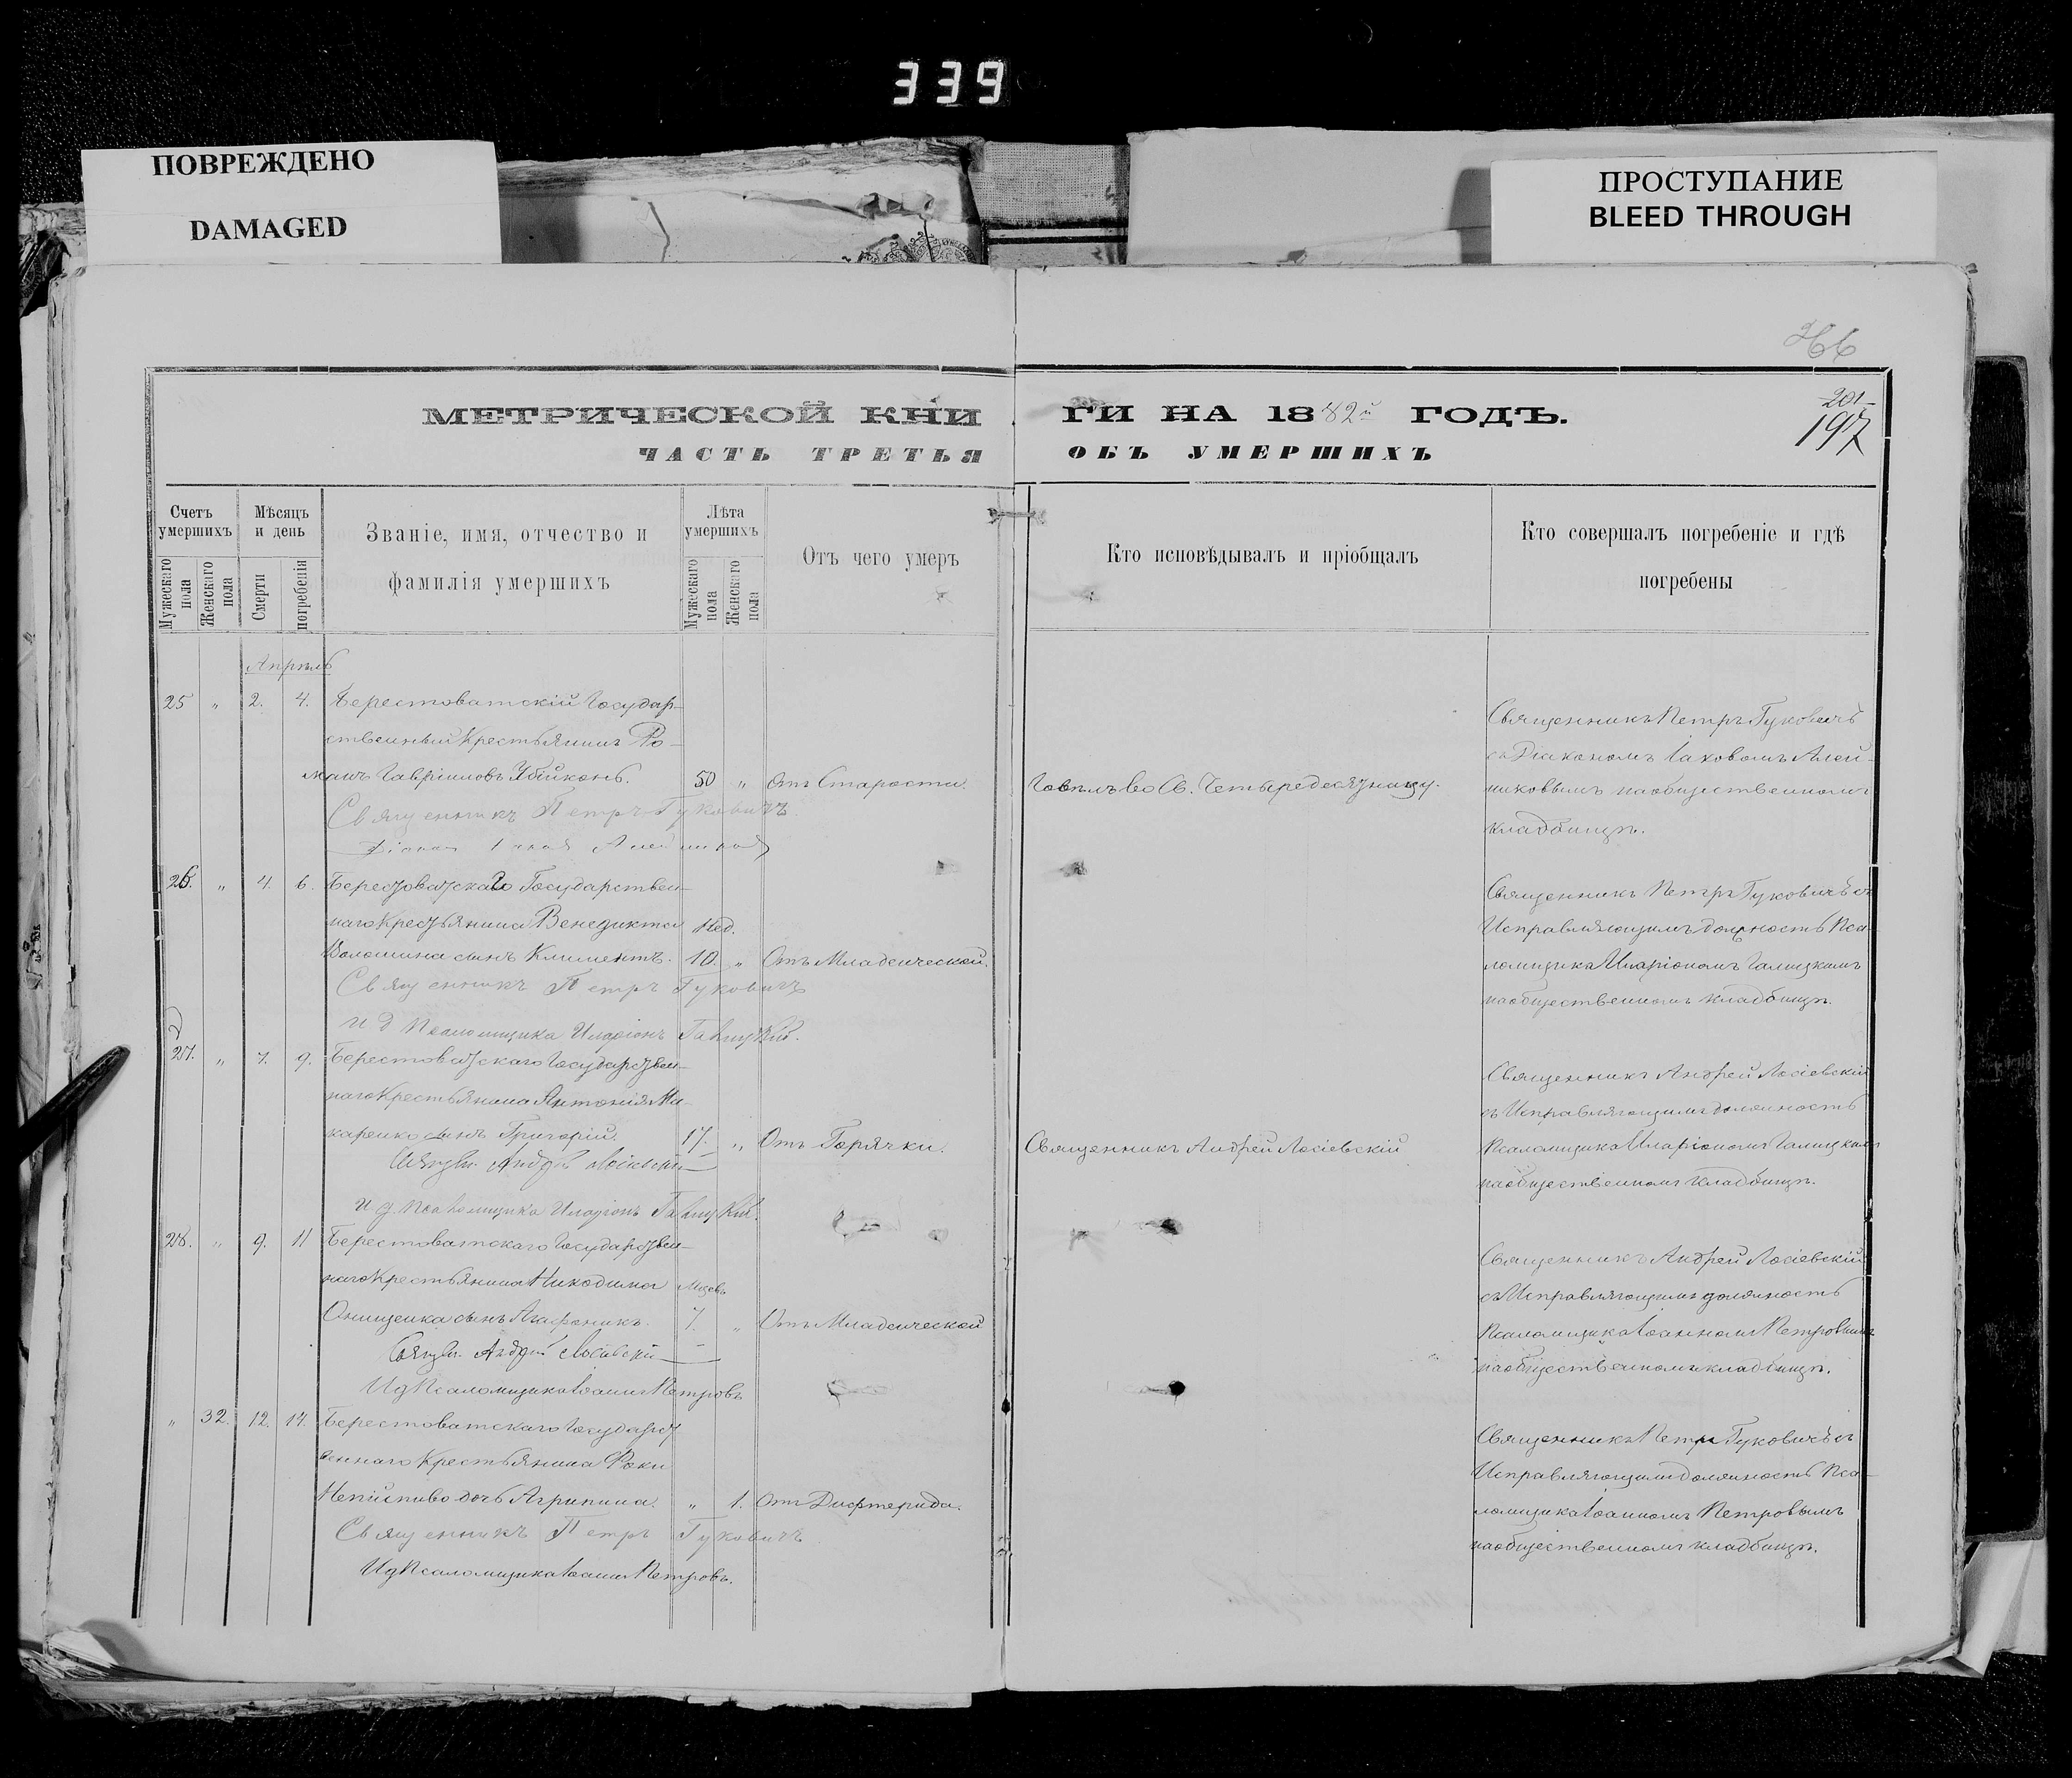 339
ПОВРЕЖДЕНО
DAMAGED
ПРОСТУПАНИЕ
BLEED THROUGH
201
197
МЕТРИЧЕСКОЙ КНИГИ НА 1882й ГОДЪ.
ЧАСТЬ ТРЕТЬЯ ОБЪ УМЕРШИХЪ
Счетъ умершихъ
Мужескаго пола
Женскаго пола
Мѣсяцъ и день
Смерти
погребенія
Званіе, имя, отчество и
фамилія умершихъ
Лѣта умершихъ
Мужескаго пола
Женскаго пола
Отъ чего умеръ
Кто исповѣдывалъ и пріобщалъ
Кто совершалъ погребеніе и гдѣ
погребены
Апрѣль
25 „ 2. 4. Берестоватскій Государ-
ственный Крестьянинъ Ро-
манъ Гавріиловъ 50 „ Отъ Старости.
Говѣлъ во Св. Четыредесятницу.
Священникъ Петръ Гуковичъ
съ Діакономъ Іаковомъ Алей-
никовымъ на общественномъ
кладбищѣ.
Священникъ Петръ Гуковичъ
Діаконъ Іаковъ Алейниковъ
26. „ 4. 6. Берестоватскаго Государствен-
наго Крестьянина Венедикта Нед.
Волошина сынъ Климентъ. 10. „ Отъ Младенческой.
Священникъ Петръ Гуковичъ съ
Исправляющимъ должность Пса-
ломщика Иларіономъ Галицкимъ
на общественномъ кладбищѣ.
Священникъ Петръ Гуковичъ
И д Псаломщика Иларіонъ Галицкій.
27. „ 7. 9. Берестоватскаго Государствен-
наго Крестьянина Антонія Ма-
каренко сынъ Григорій. 17. „ Отъ Горячки.
Священникъ Андрей Лосіевскій
Священникъ Андрей Лосіевскій
съ Исправляющимъ должность
Псаломщика Иларіономъ Галицкимъ
на общественномъ кладбищѣ.
Свящн. Андрей Лосіевскій
И. д. Псаломщика Иларіонъ Галицкій.
28. „ 9. 11 Берестоватскаго Государствен-
наго Крестьянина Никодима Мцевъ
Онищенка сынъ Агафоникъ. 7. „ Отъ Младенческой
Священникъ Андрей Лосіевскій
съ Исправляющимъ должность
Псаломщика Іоанномъ Петровымъ
на общественномъ кладбищѣ.
Свящн. Андрей Лосіевскій
И д Псаломщика Іоаннъ Петровъ
„ 32. 12. 14. Берестоватскаго Государст
веннаго Крестьянина Фоки
Непійпиво дочь Агрипина. „ 1. Отъ Дифтерида.
Священникъ Петръ Гуковичъ съ
Исправляющимъ должность Пса-
ломщика Іоанномъ Петровымъ
на общественномъ кладбищѣ.
Священникъ Петръ Гуковичъ
И д Псаломщика Іоаннъ Петровъ.